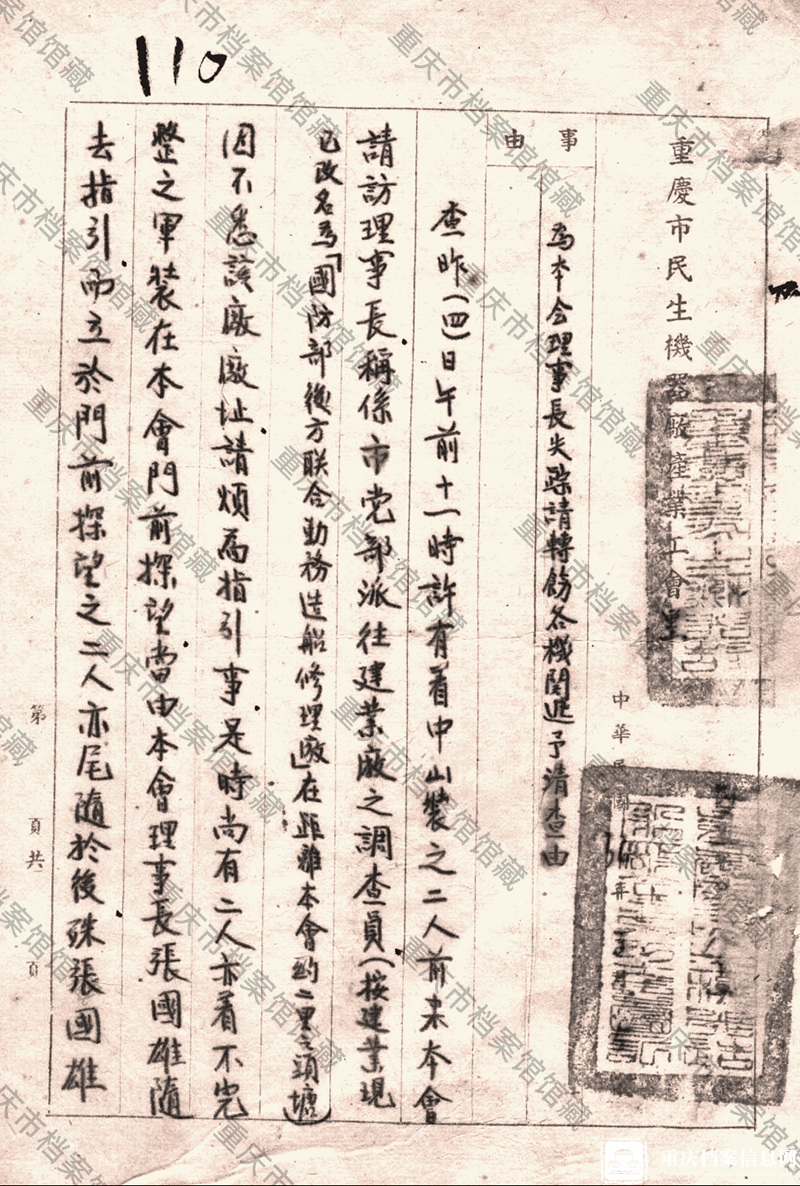 110
重慶市民生機器廠產業工會呈
中華民國36年五月
事由
為本会理事長失踪請轉飭各機関進予清查由
查昨(四)日午前十一時許有着中山裝之二人前来本會
請訪理事長稱係市党部派往建業廠之調查員(按建業現
已改名為「國防部後方联合勤務造船修理廠」在距離本會約二里之頭塘)
因不悉該廠廠址請煩為指引事是時尚有二人亦着不完
整之軍裝在本會門前探望當由本會理事長張國雄隨
去指引而立於門前探望之二人亦尾隨於後殊張國雄
第 頁共 頁
重庆市档案馆馆藏
重庆档案信息网